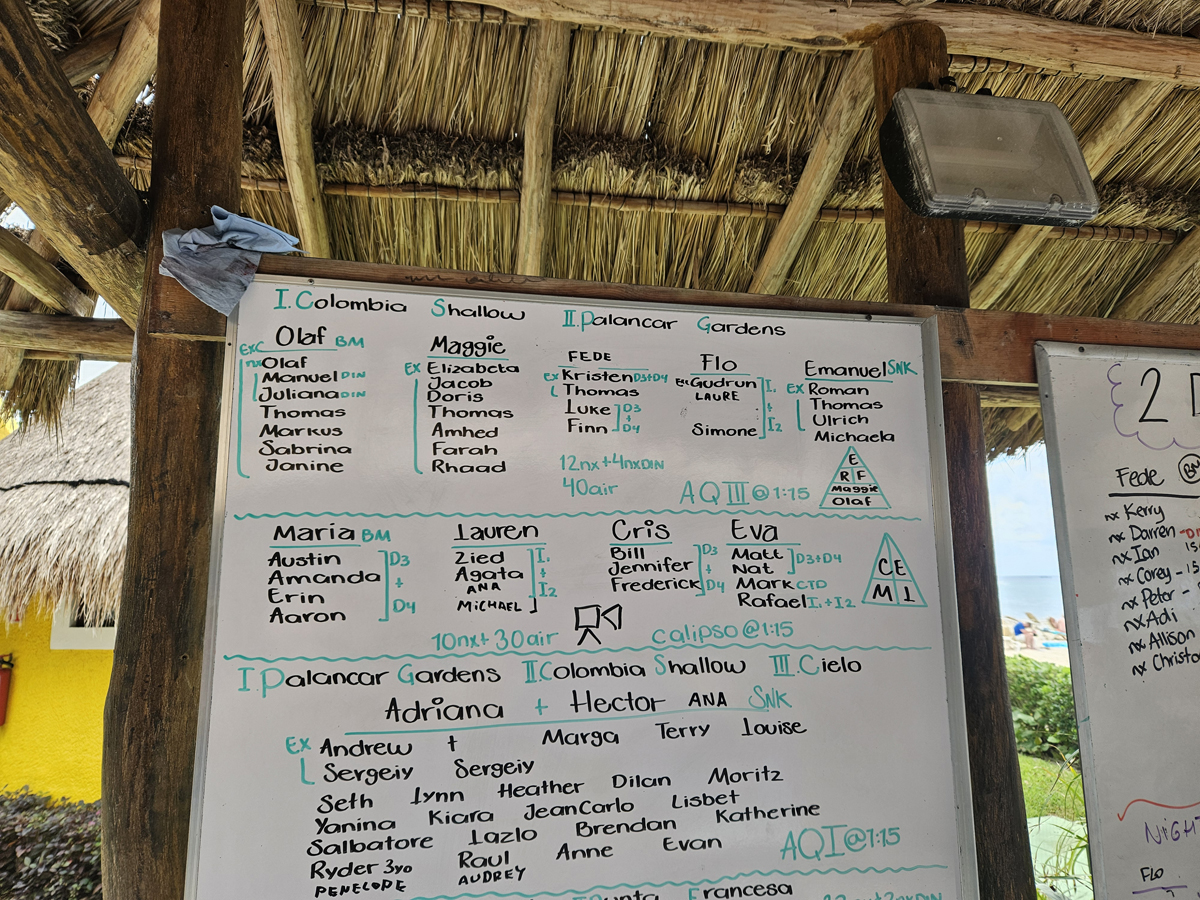 I. Colombia Shallow II. Palancar Gardens
Olaf BM
EXC
nx Olaf
Manuel DIN
Juliana DIN
Thomas
Markus
Sabrina
Janine
Maggie
EX Elizabeta
Jacob
Doris
Thomas
Amhed
Farah
Rhaad
FEDE
EX Kristen D3+D4
Thomas
Luke D3
+
Finn D4
12nx+4nxDIN
40air
Flo
EX Gudrun I1
LAURE
+
Simone I2
Emanuel SNK
EX Roman
Thomas
Ulrich
Michaela
AQIII@1:15
E
R F
Maggie
Olaf
Maria BM
Austin D3
Amanda +
Erin
Aaron D4
Lauren
Zied I1
Agata +
ANA I2
MICHAEL
10nx+30air
Cris
Bill D3
Jennifer +
Frederick D4
Eva
Matt D3+D4
Nat
Mark CTD
Rafael I1+I2
calipso@1:15
C E
M L
I. Palancar Gardens II. Colombia Shallow III. Cielo
Adriana + Hector ANA SNK
EX Andrew + Marga Terry Louise
Sergeiy Sergeiy
Seth Lynn Heather Dilan Moritz
Yanina Kiara JeanCarlo Lisbet
Salbatore Lazlo Brendan Katherine
Ryder 3yo Raul Anne Evan
PENELOPE AUDREY
AQI@1:15
Francesa
2
Fede
nx Kerry
nx Darren
nx Ian 15
nx Corey - 15
nx Peter -
nx Adi
nx Allison
nx Christo
NIGHT
FLO